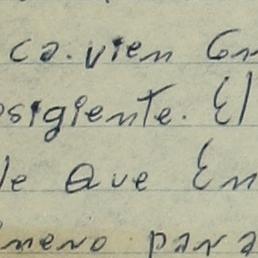 ca. vien
osigiente. El
de que En
meno para